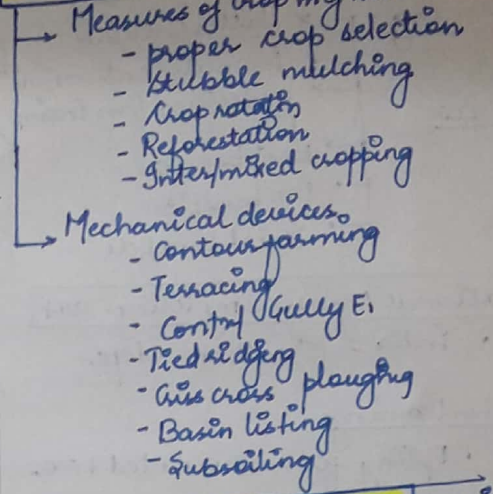 Measures of crop
- proper crop selection
- Stubble mulching
- Crop rotatin
- Reforestation
- Inter/mixed cropping
Mechanical devices
- Contour farming
- Terracing
- Control Gully E.
- Tied ridging
- Criss cross ploughing
- Basin listing
- Subsoiling